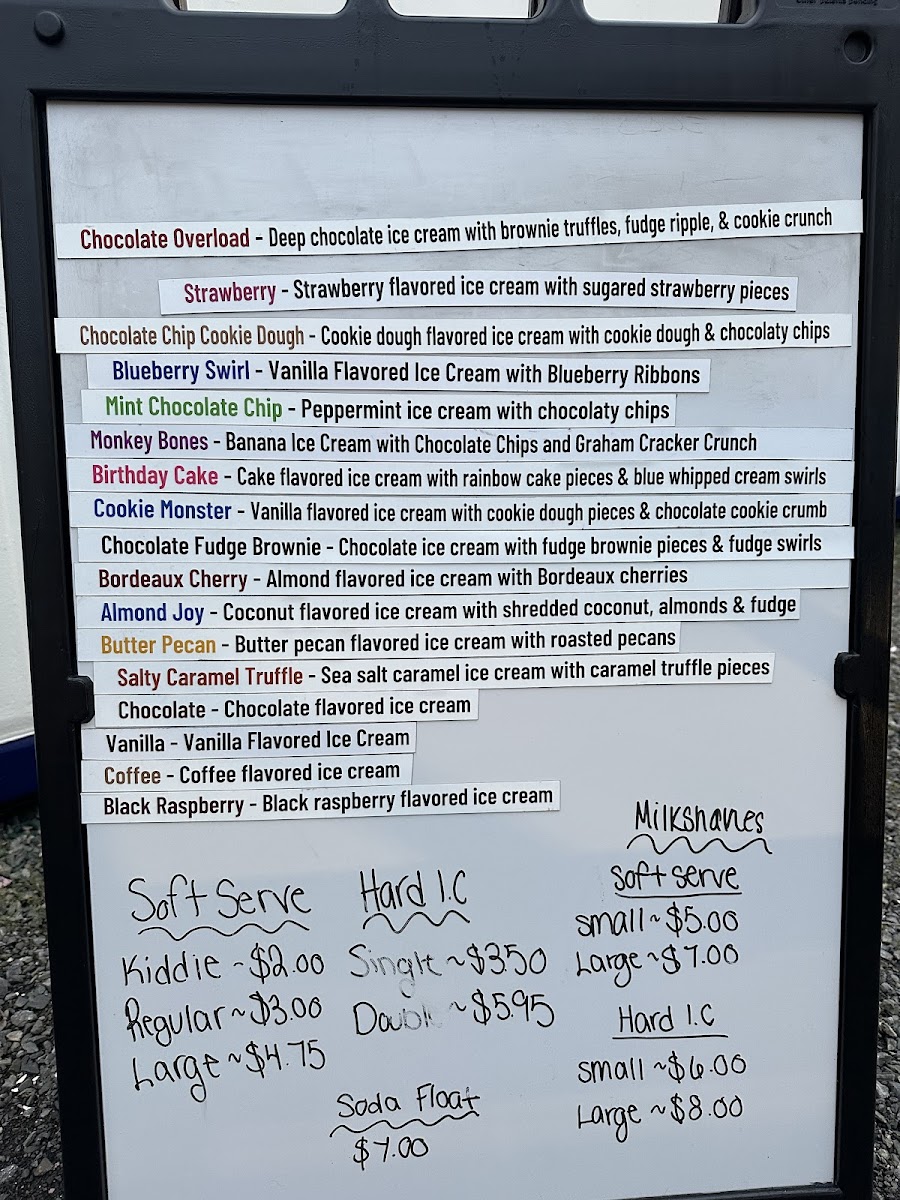 Chocolate Overload - Deep chocolate ice cream with brownie truffles, fudge ripple, & cookie crunch
Strawberry - Strawberry flavored ice cream with sugared strawberry pieces
Chocolate Chip Cookie Dough - Cookie dough flavored ice cream with cookie dough & chocolaty chips
Blueberry Swirl - Vanilla Flavored Ice Cream with Blueberry Ribbons
Mint Chocolate Chip - Peppermint ice cream with chocolaty chips
Monkey Bones - Banana Ice Cream with Chocolate Chips and Graham Cracker Crunch
Birthday Cake - Cake flavored ice cream with rainbow cake pieces & blue whipped cream swirls
Cookie Monster - Vanilla flavored ice cream with cookie dough pieces & chocolate cookie crumb
Chocolate Fudge Brownie - Chocolate ice cream with fudge brownie pieces & fudge swirls
Bordeaux Cherry - Almond flavored ice cream with Bordeaux cherries
Almond Joy - Coconut flavored ice cream with shredded coconut, almonds & fudge
Butter Pecan - Butter pecan flavored ice cream with roasted pecans
Salty Caramel Truffle - Sea salt caramel ice cream with caramel truffle pieces
Chocolate - Chocolate flavored ice cream
Vanilla - Vanilla Flavored Ice Cream
Coffee - Coffee flavored ice cream
Black Raspberry - Black raspberry flavored ice cream
Soft Serve
Kiddie ~ $2.00
Regular ~ $3.00
Large ~ $4.75
Hard I.C
Single ~ $3.50
Double ~ $5.95
Soda Float
$7.00
Milkshakes
Soft serve
small ~ $5.00
Large ~ $7.00
Hard I.C
small ~ $6.00
Large ~ $8.00